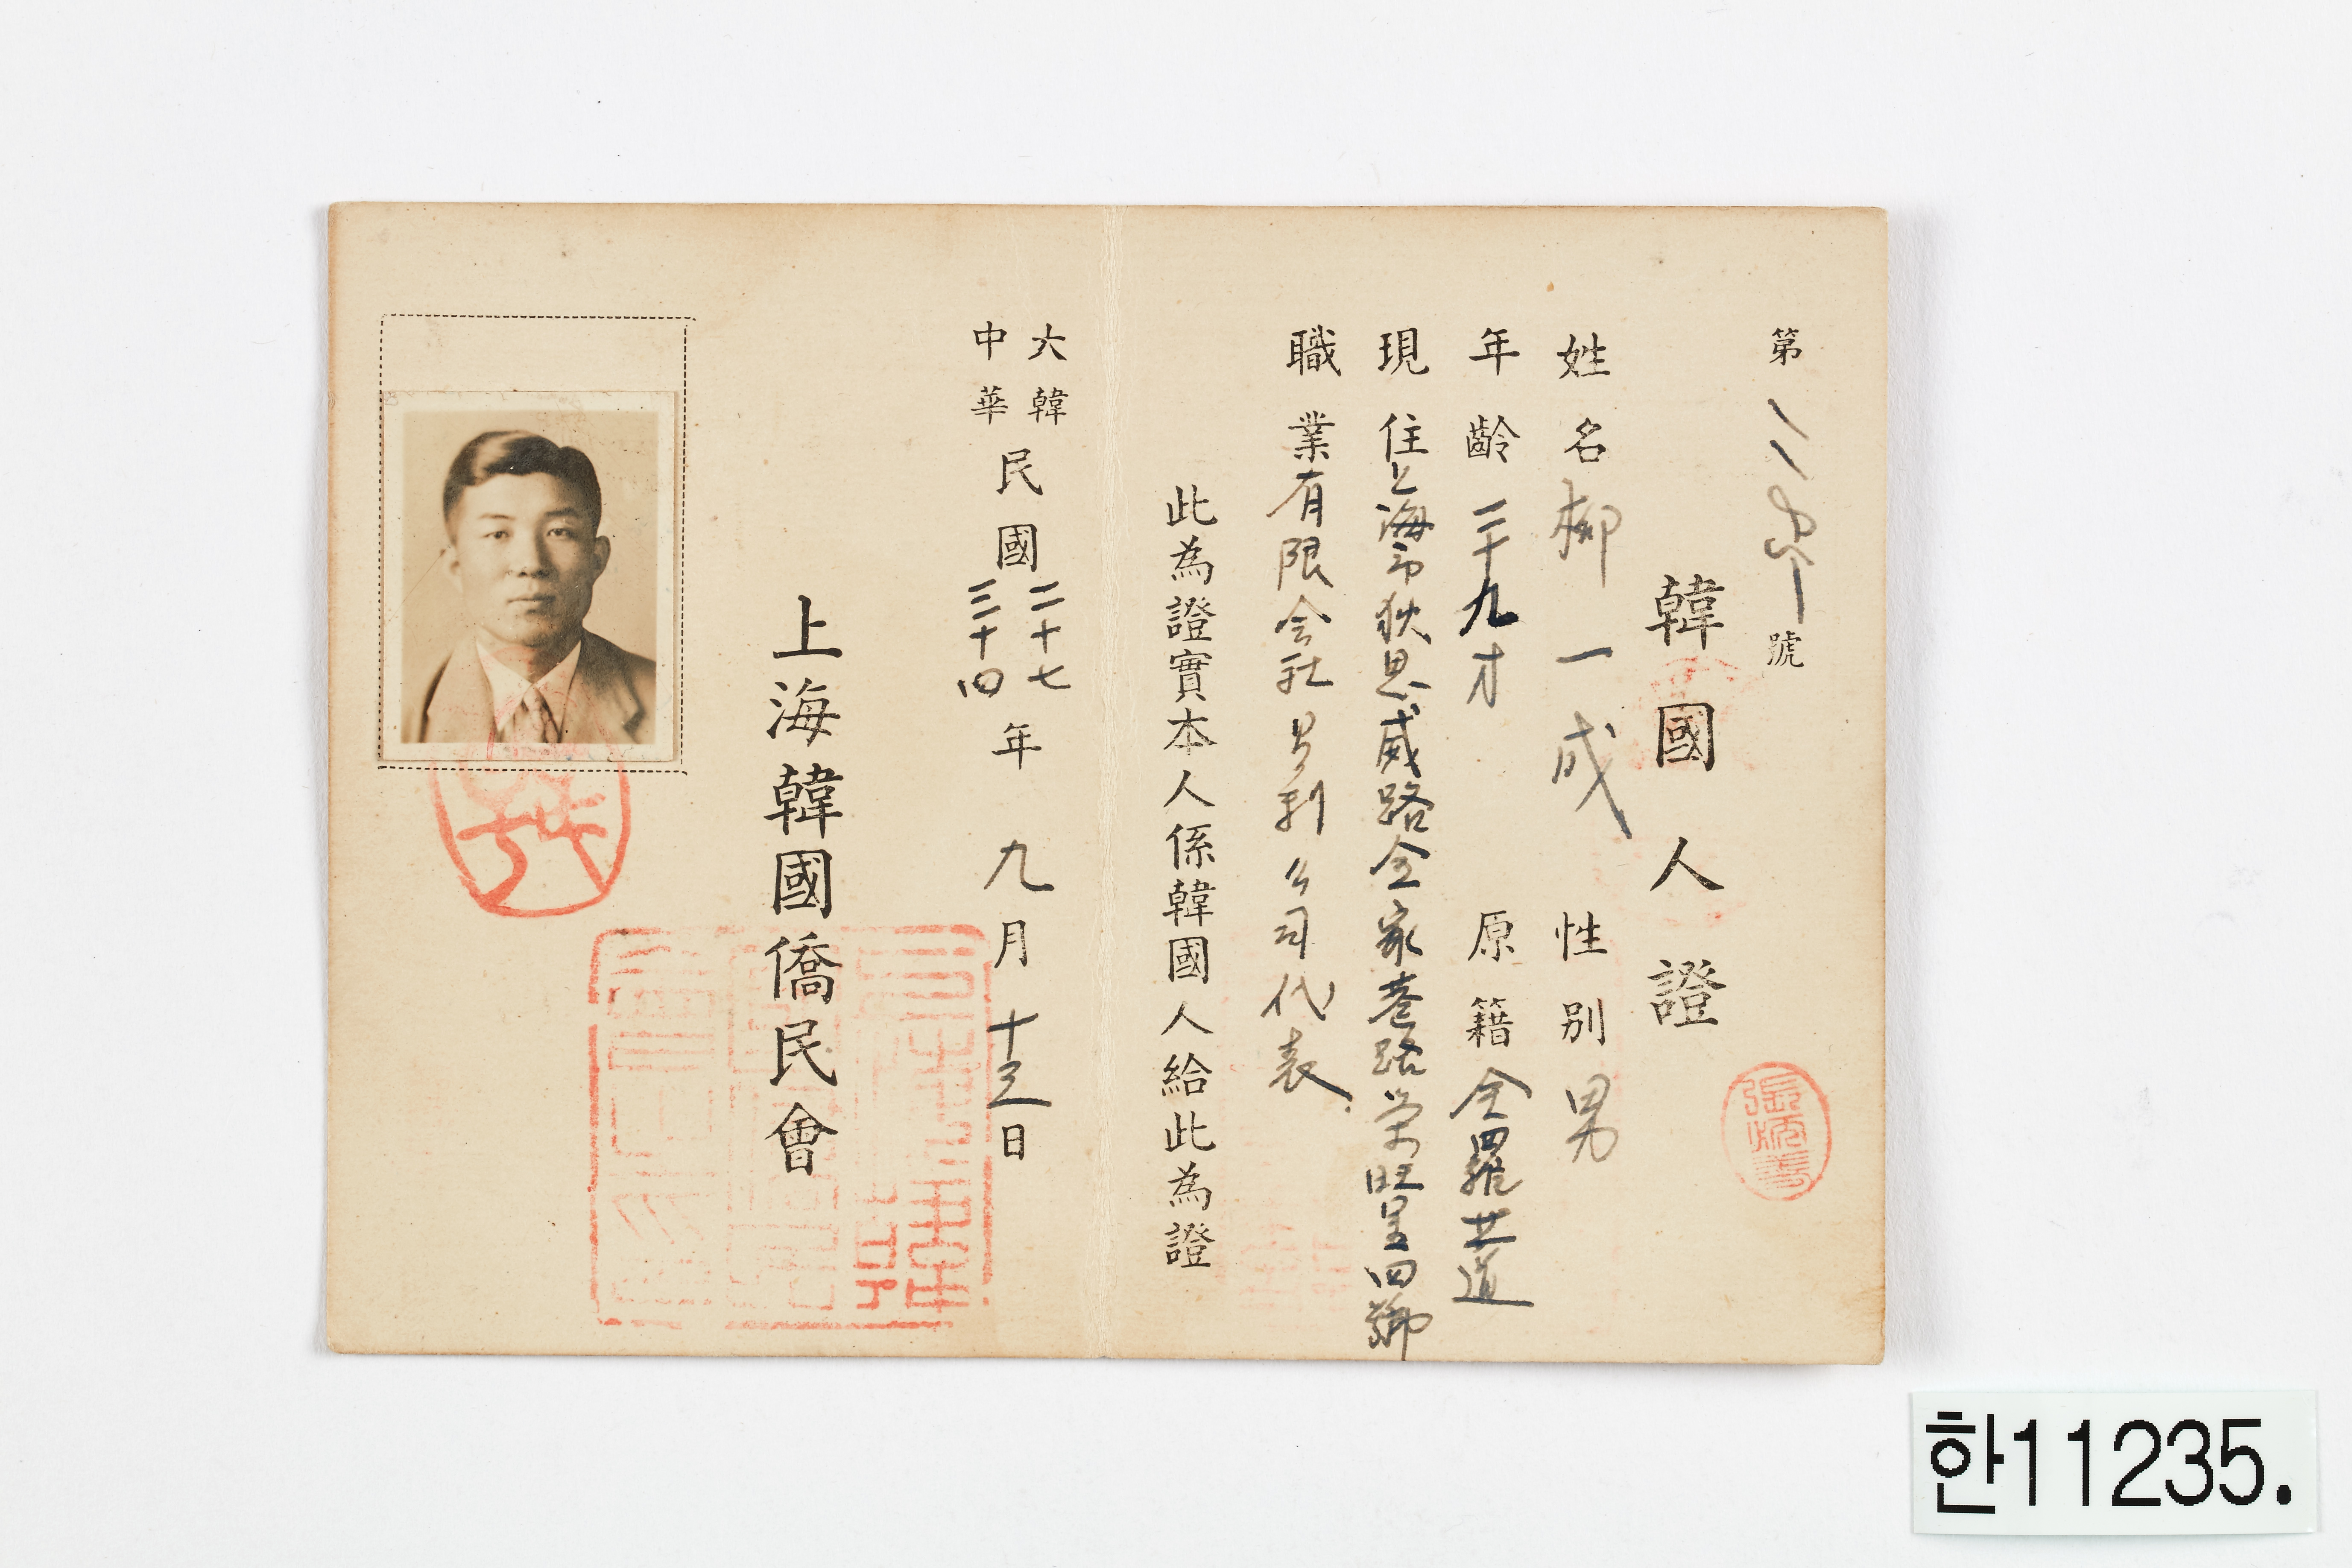 第 號
韓國人證
姓名 柳一成 性別 男
年齡 二十九才 原籍 全羅北道
現住 上海市狄思威路全家巷路榮旺里四號
職業 有限会社 利公司代表
此為證實本人係韓國人給此為證
大韓中華民國二十七三十四年九月十三日
上海韓國僑民會
張炳
한11235.